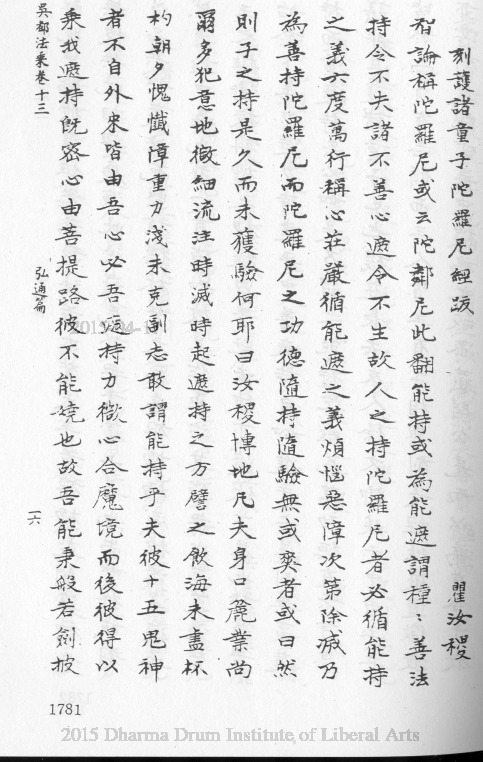 刻護諸童子陀羅尼經跋
瞿汝稷
智論稱陀羅尼或云陀鄰尼此翻能持或為能遮謂種〻善法
持令不失諸不善心遮令不生故人之持陀羅尼者必循能持
之義六度萬行稱心莊嚴循能遮之義煩惱惡障次第除滅乃
為善持陀羅尼而陀羅尼之功德隨持隨驗無或爽者或曰然
則子之持是久而未獲驗何耶曰汝稷博地凡夫身口麁業尚
爾多犯意地微細流注時滅時起遮持之方譬之飲海未盡杯
杓朝夕愧懺障重力淺未克副志敢謂能持乎夫彼十五鬼神
者不自外來皆由吾心必吾遮持力微心合魔境而後彼得以
乘我遮持既密心由菩提路彼不能嬈也故吾能秉般若劍披
吳都法乘卷十三
弘通篇
一六
1781
2015 Dharma Drum Institute of Liberal Arts